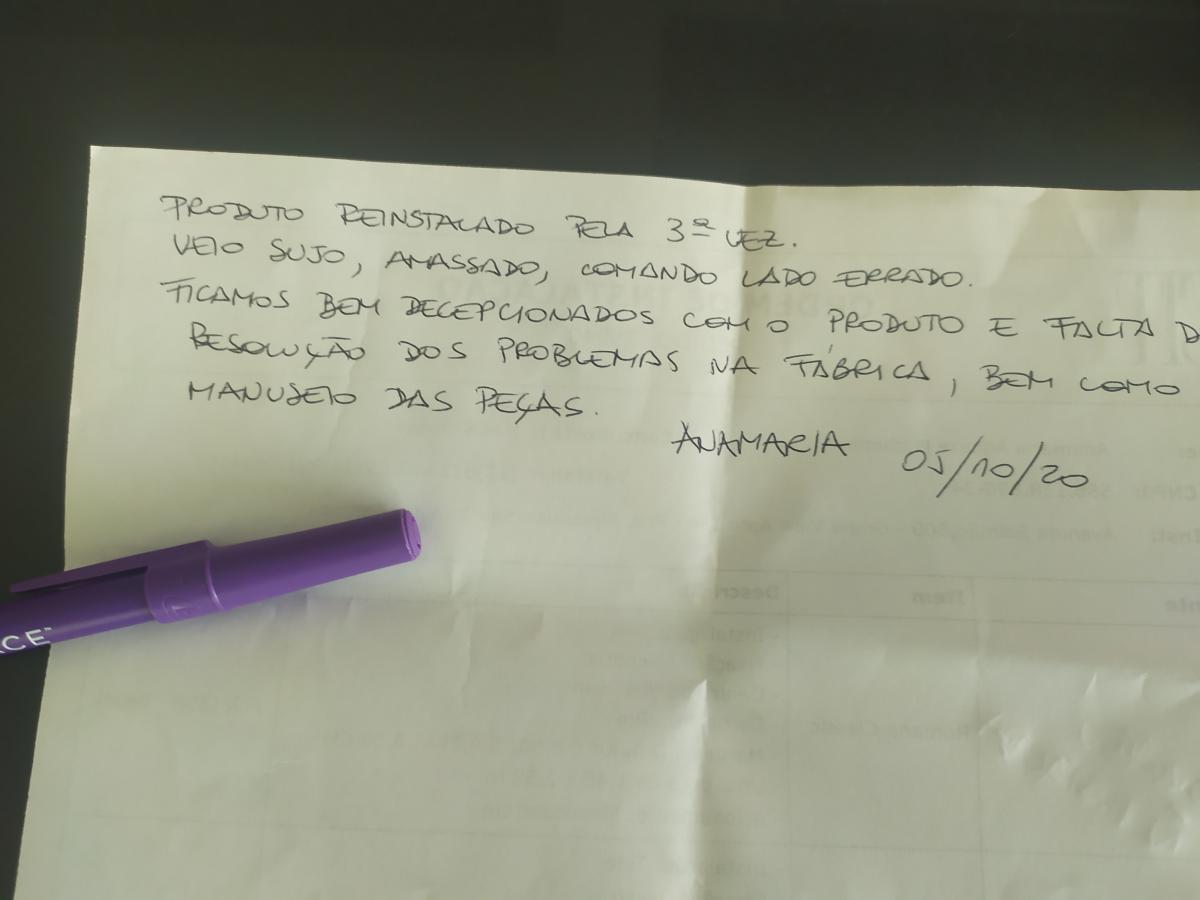 PRODUTO REINSTALADO PELA 3ª VEZ.
VEIO SUJO, AMASSADO, COMANDO LADO ERRADO.
FICAMOS BEM DECEPCIONADOS COM O PRODUTO E FALTA D
RESOLUÇÃO DOS PROBLEMAS NA FÁBRICA, BEM COMO
MANUSEIO DAS PEÇAS.
ANAMARIA 05/10/20
CE™